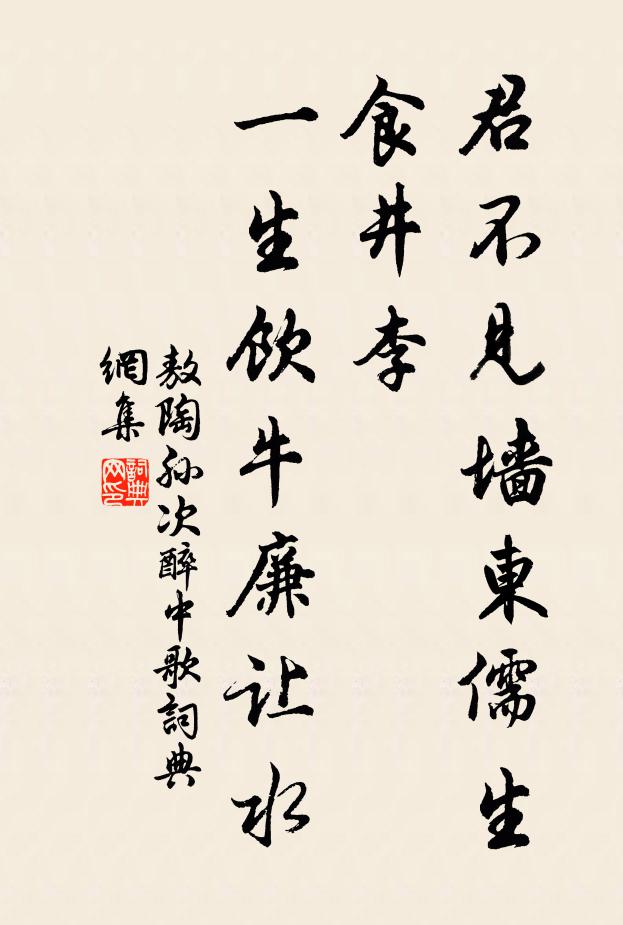 君不見墙東儒生
食井李
一生飲牛廉让水
敖陶孙次醉中歌詞典
網集
詞典
网印